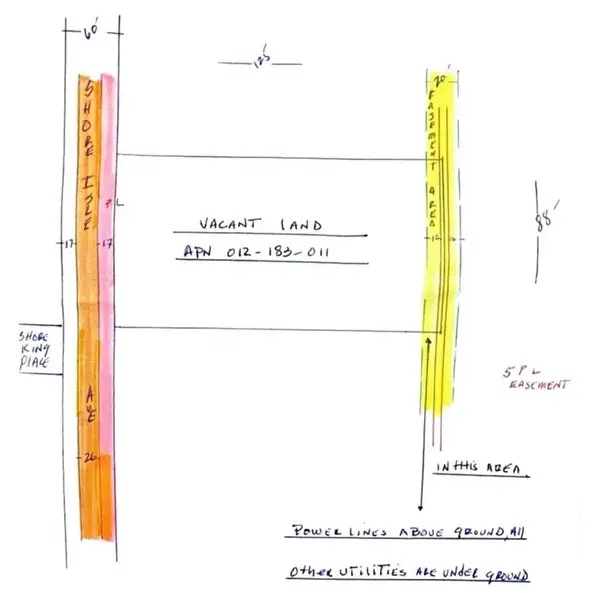 60'
125'
20'
SHORE ISLE
EASEMENT AREA
P L
VACANT LAND
APN 012-183-011
17
17
10
10
88'
SHORE
KING
PLACE
AVE
5 P L
EASEMENT
26
IN THIS AREA
POWER LINES ABOVE GROUND, All
OTHER UTILITIES ARE UNDER GROUND